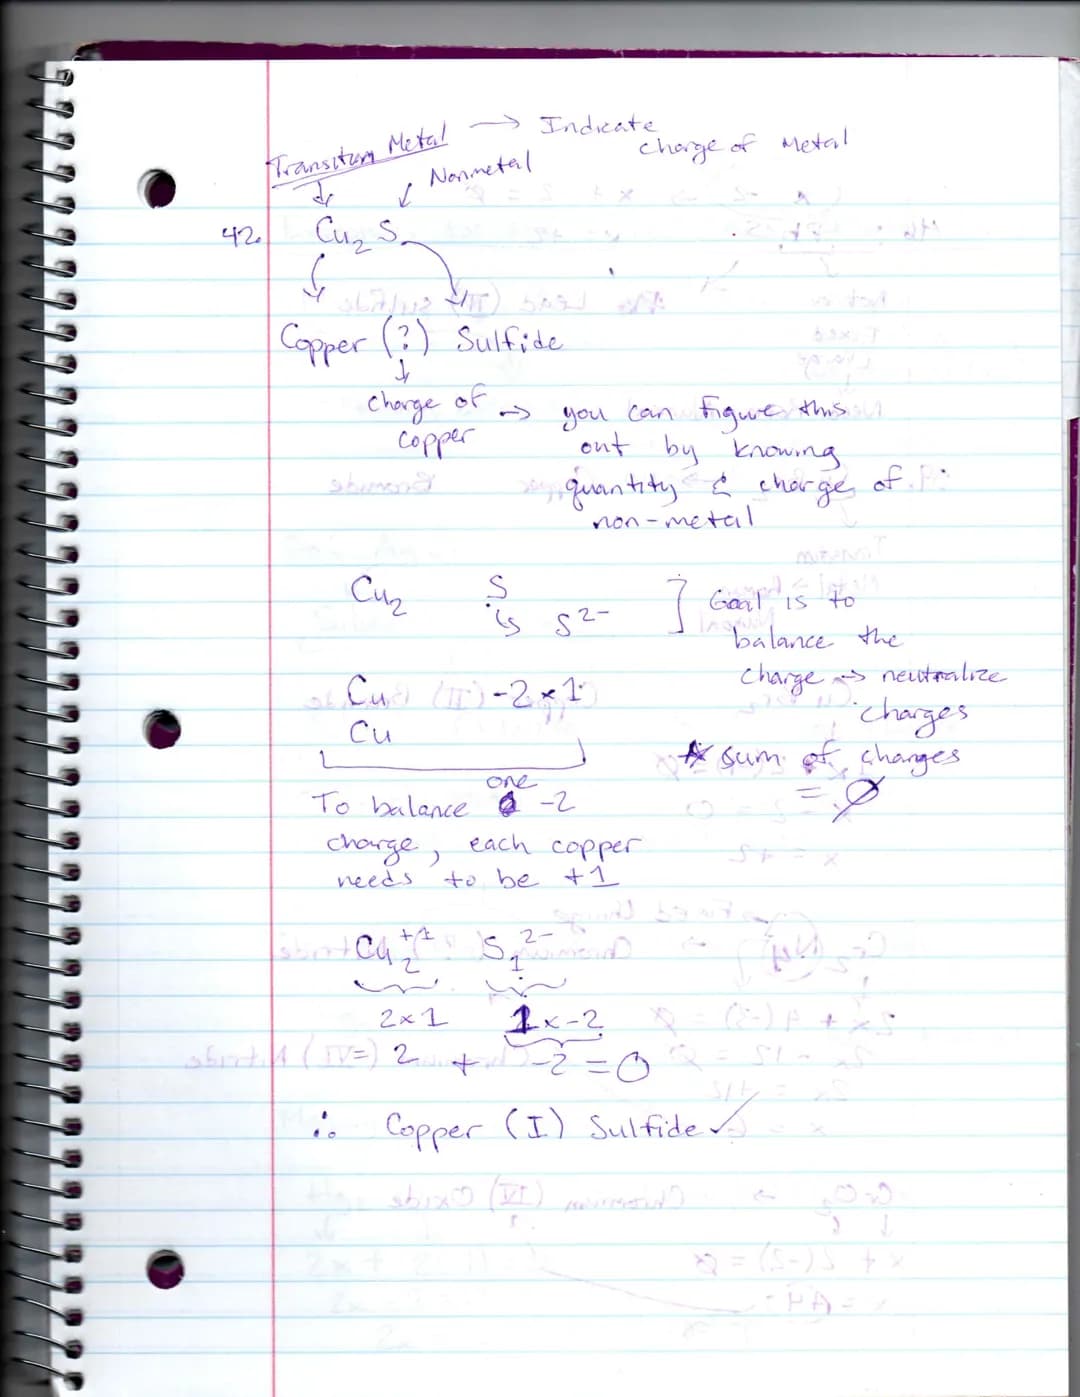 Transitum Metal → Indicate
charge of Metal
Nonmetal
42. Cu₂ S
Copper (?) Sulfide
charge of → you can figure this
copper out by knowing
quantity & charge of
non-metal
Cu₂ S ] Goal is to
↳ S²⁻ balance the
charge → neutralize
Cu -2 × 1 charges
Cu ☆ sum of charges
= ∅
one
To balance -2
charge, each copper
needs to be +1
Cu₂⁺¹ S₁²⁻
2×1 1×-2
2 + -2 = 0
∴ Copper (I) Sulfide ✓